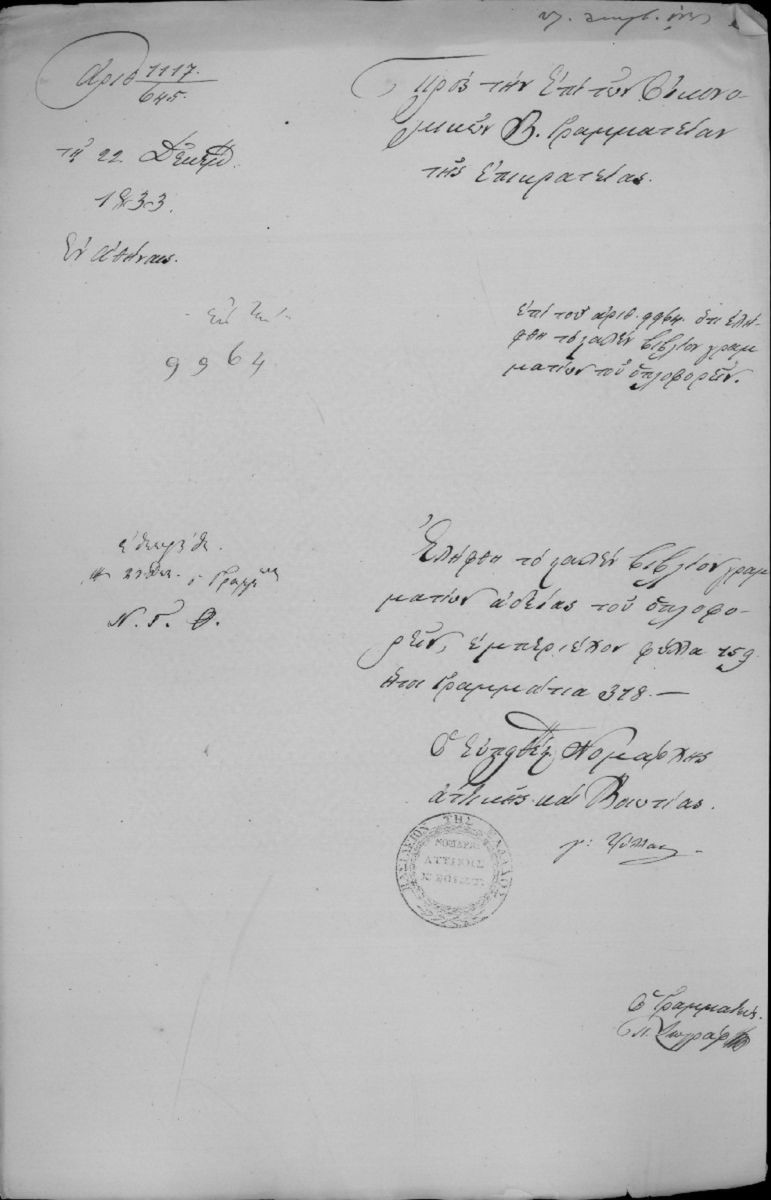 Αριθ 1117.
645.
τῇ 22 Δεκεμβ.
1833.
Ἐν Ἀθήναις.
Πρὸς τὴν ἐπὶ τῶν Οἰκονο-
μικῶν Β. Γραμματείαν
τῆς Ἐπικρατείας.
9964
Ἐπὶ τοῦ ἀριθ. 9964. ὅτι ἐλή-
φθη τὸ βιβλίον γραμ
ματίων τοῦ ὁπλοφορεῖν.
Ἐλήφθη τὸ βιβλίον γραμ
ματίων ἀδείας τοῦ ὁπλοφο-
ρεῖν, ἐμπεριέχον φύλλα 159
ἤτοι Γραμμάτια 318.—
Ν. Γ. Θ.
Ὁ Νομάρχης
Ἀττικῆς καὶ Βοιωτίας.
ΒΑΣΙΛΕΙΟΝ ΤΗΣ ΕΛΛΑΔΟΣ
ΝΟΜΑΡΧ.
ΑΤΤΙΚΗΣ
Ὁ Γραμματεὺς.